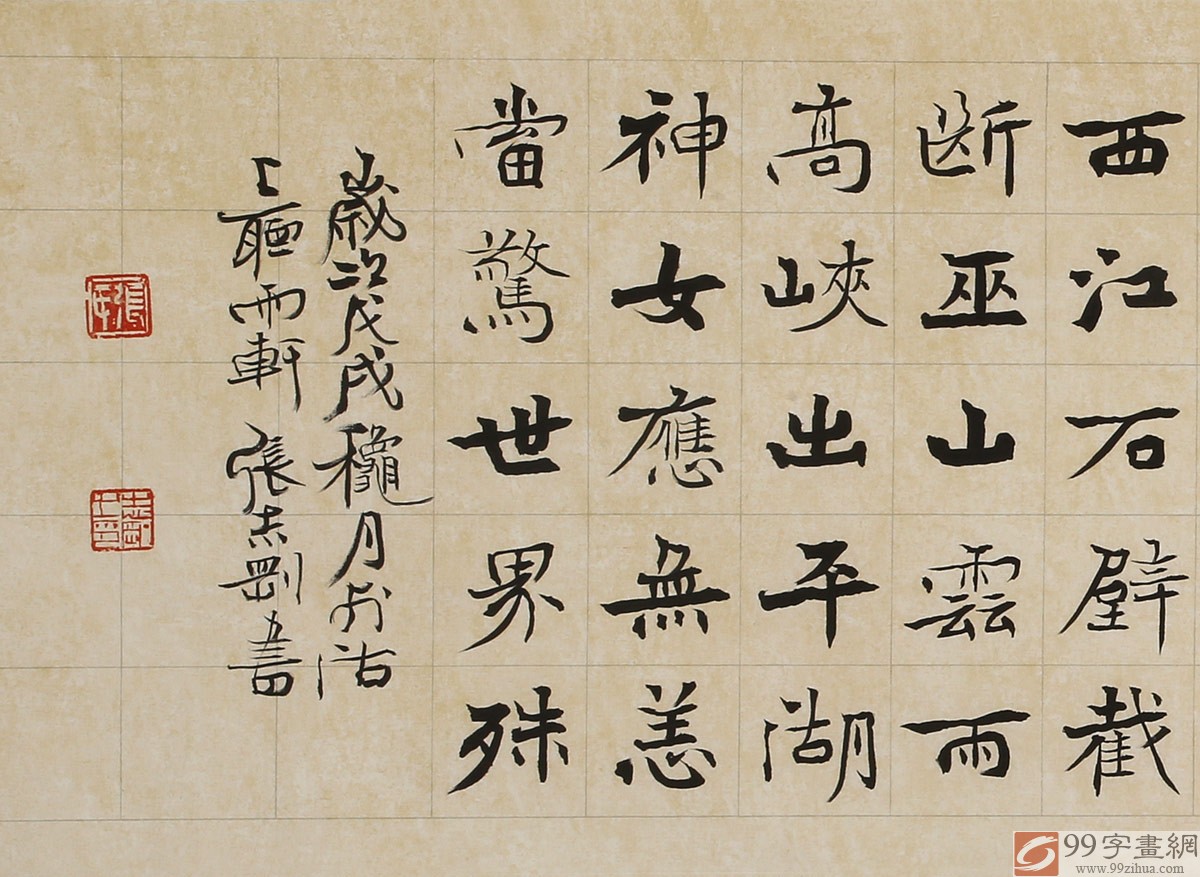 西江石壁截
断巫山雲雨
高峽出平湖
神女應無恙
當驚世界殊
歲次戊戌龝月於沽
上聽雨軒張志剛書
志剛之印
99字畫網
www.99zihua.com